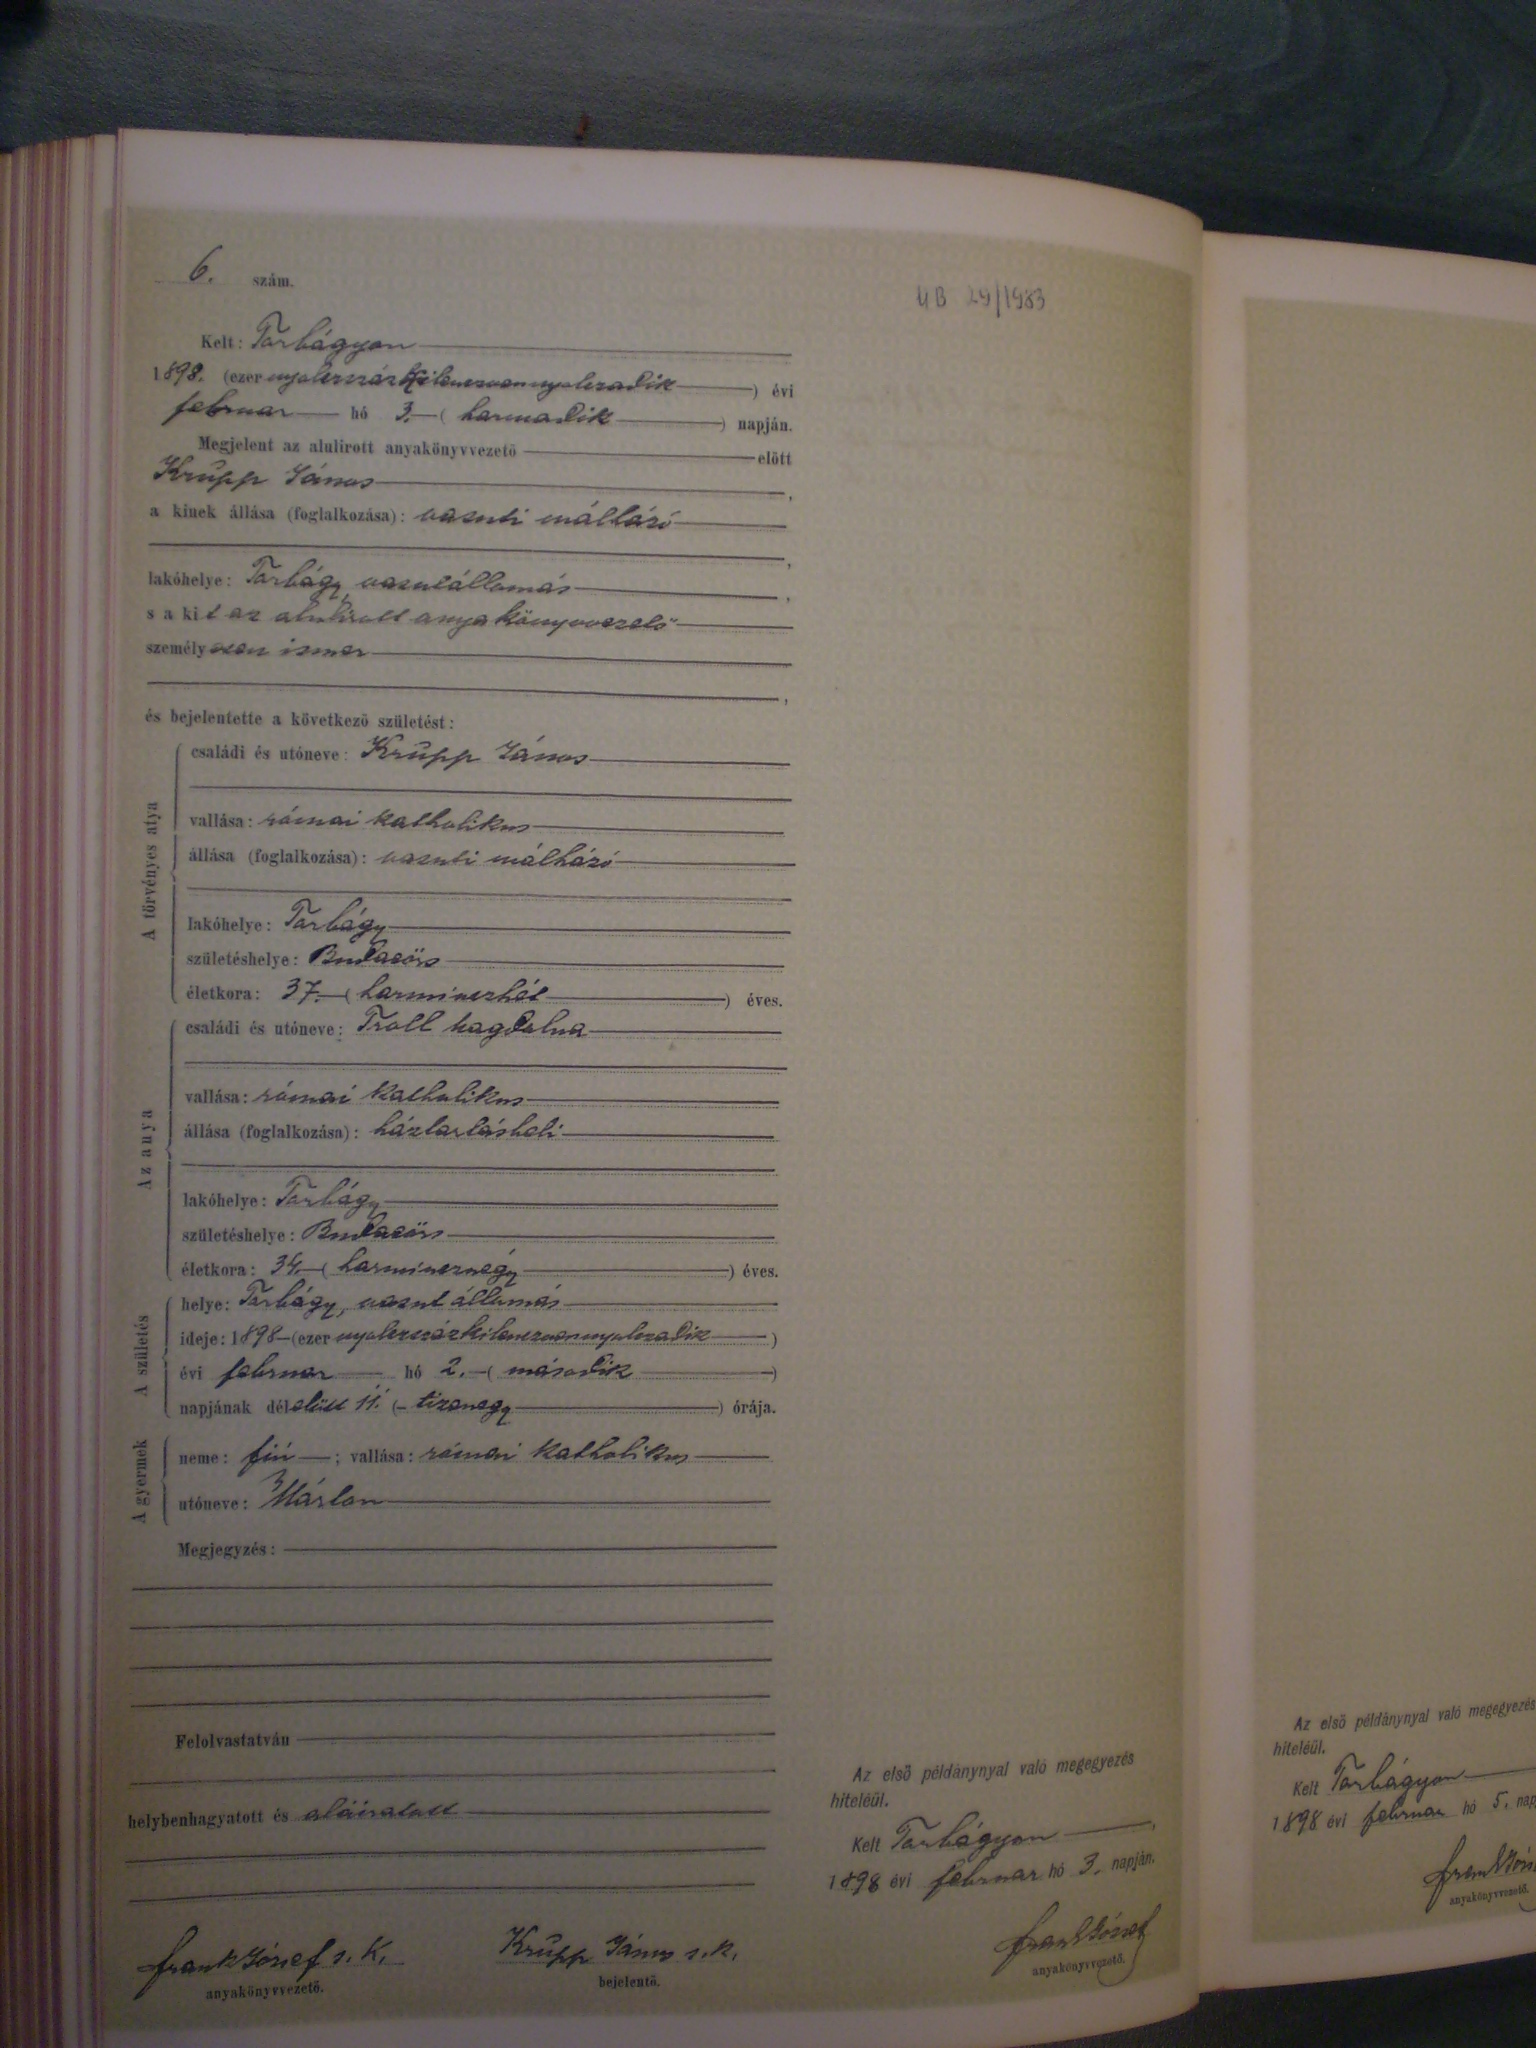 6. szám.
4B 29/1983
Kelt: Torbágyon
1898. (ezer nyolczszázkilenczvennyolczadik) évi
februar hó 3. (harmadik) napján.
Megjelent az alulirott anyakönyvvezető előtt
Krupp János,
a kinek állása (foglalkozása): vasuti málházó
,
lakóhelye: Torbágy vasutállomás,
s a kit az alulirott anyakönyvvezető
személyesen ismer
,
és bejelentette a következő születést:
A törvényes atya
családi és utóneve: Krupp János
vallása: római katholikus
állása (foglalkozása): vasuti málházó
lakóhelye: Torbágy
születéshelye: Budaörs
életkora: 37. (harminczhét) éves.
Az anya
családi és utóneve: Troll Magdolna
vallása: római katholikus
állása (foglalkozása): háztartásbeli
lakóhelye: Torbágy
születéshelye: Budaörs
életkora: 34. (harmincznégy) éves.
A születés
helye: Torbágy, vasut állomás
ideje: 1898 (ezer nyolczszázkilenczvennyolczadik)
évi februar hó 2. (második)
napjának délelőtt 11. (tizenegy) órája.
A gyermek
neme: fiú; vallása: római katholikus
utóneve: Márton
Megjegyzés:
Felolvastatván
helybenhagyatott és aláiratott
Frank József s. k.
anyakönyvvezető.
Krupp János s. k.
bejelentő.
Az első példánynyal való megegyezés
hiteléül.
Kelt Torbágyon,
1898 évi februar hó 3. napján.
Frank József
anyakönyvvezető.
Az első példánynyal való megegyezés
hiteléül.
Kelt Torbágyon
1898 évi februar hó 5. nap
Frank Józs
anyakönyvvezető.